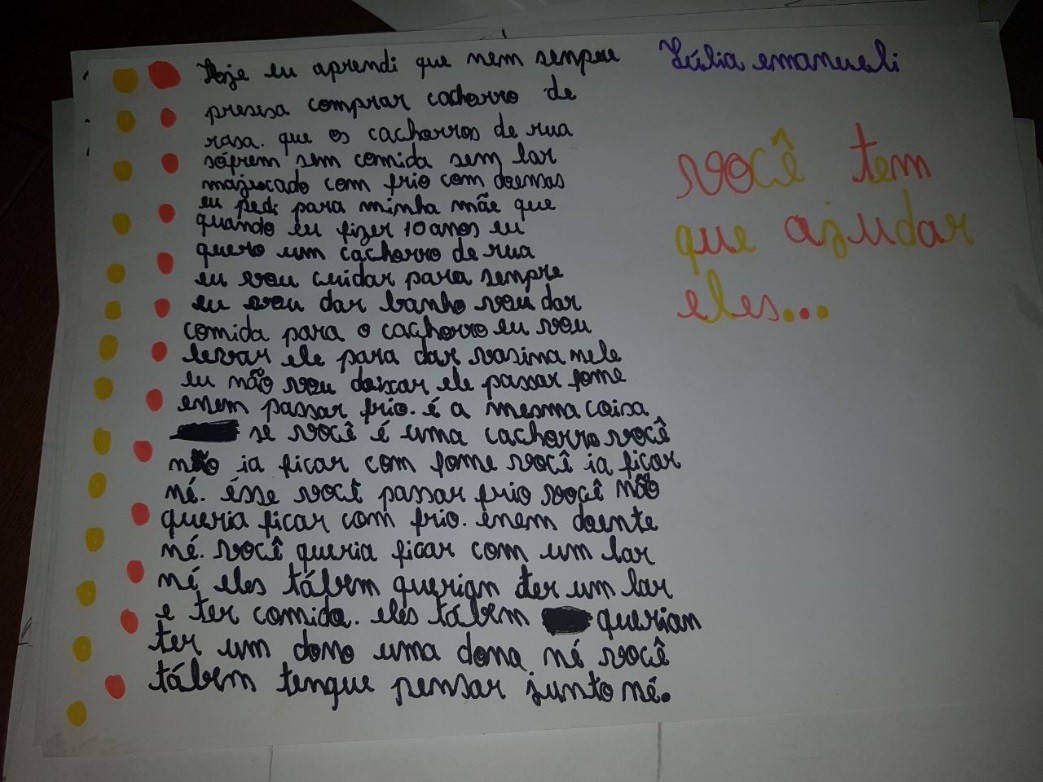 Hoje eu aprendi que nem senpre
presisa comprar cachorro de
rasa. que os cachorros de rua
sófrem sem comida sem lar
majucado com frio com doensas
eu pedi para minha mãe que
quando eu fizer 10 anos eu
quero um cachorro de rua
eu vou cuidar para sempre
eu vou dar banho vou dar
comida para o caghorro eu vou
levar ele para dar vasima nele
eu não vou daixar ele passar fome
enem passar frio. é a mesma coisa
se você é uma cachorro você
não ia ficar com fome você ia ficar
né. ésse você passar frio você não
queria ficar com frio. enem doente
né. você queria ficar com um lar
né eles tábem queriam ter um lar
e ter comida. eles tábem queriam
ter um dono uma dona né você
tábem tenque pensar junto né.
Júlia emanueli
você tem
que ajudar
eles...